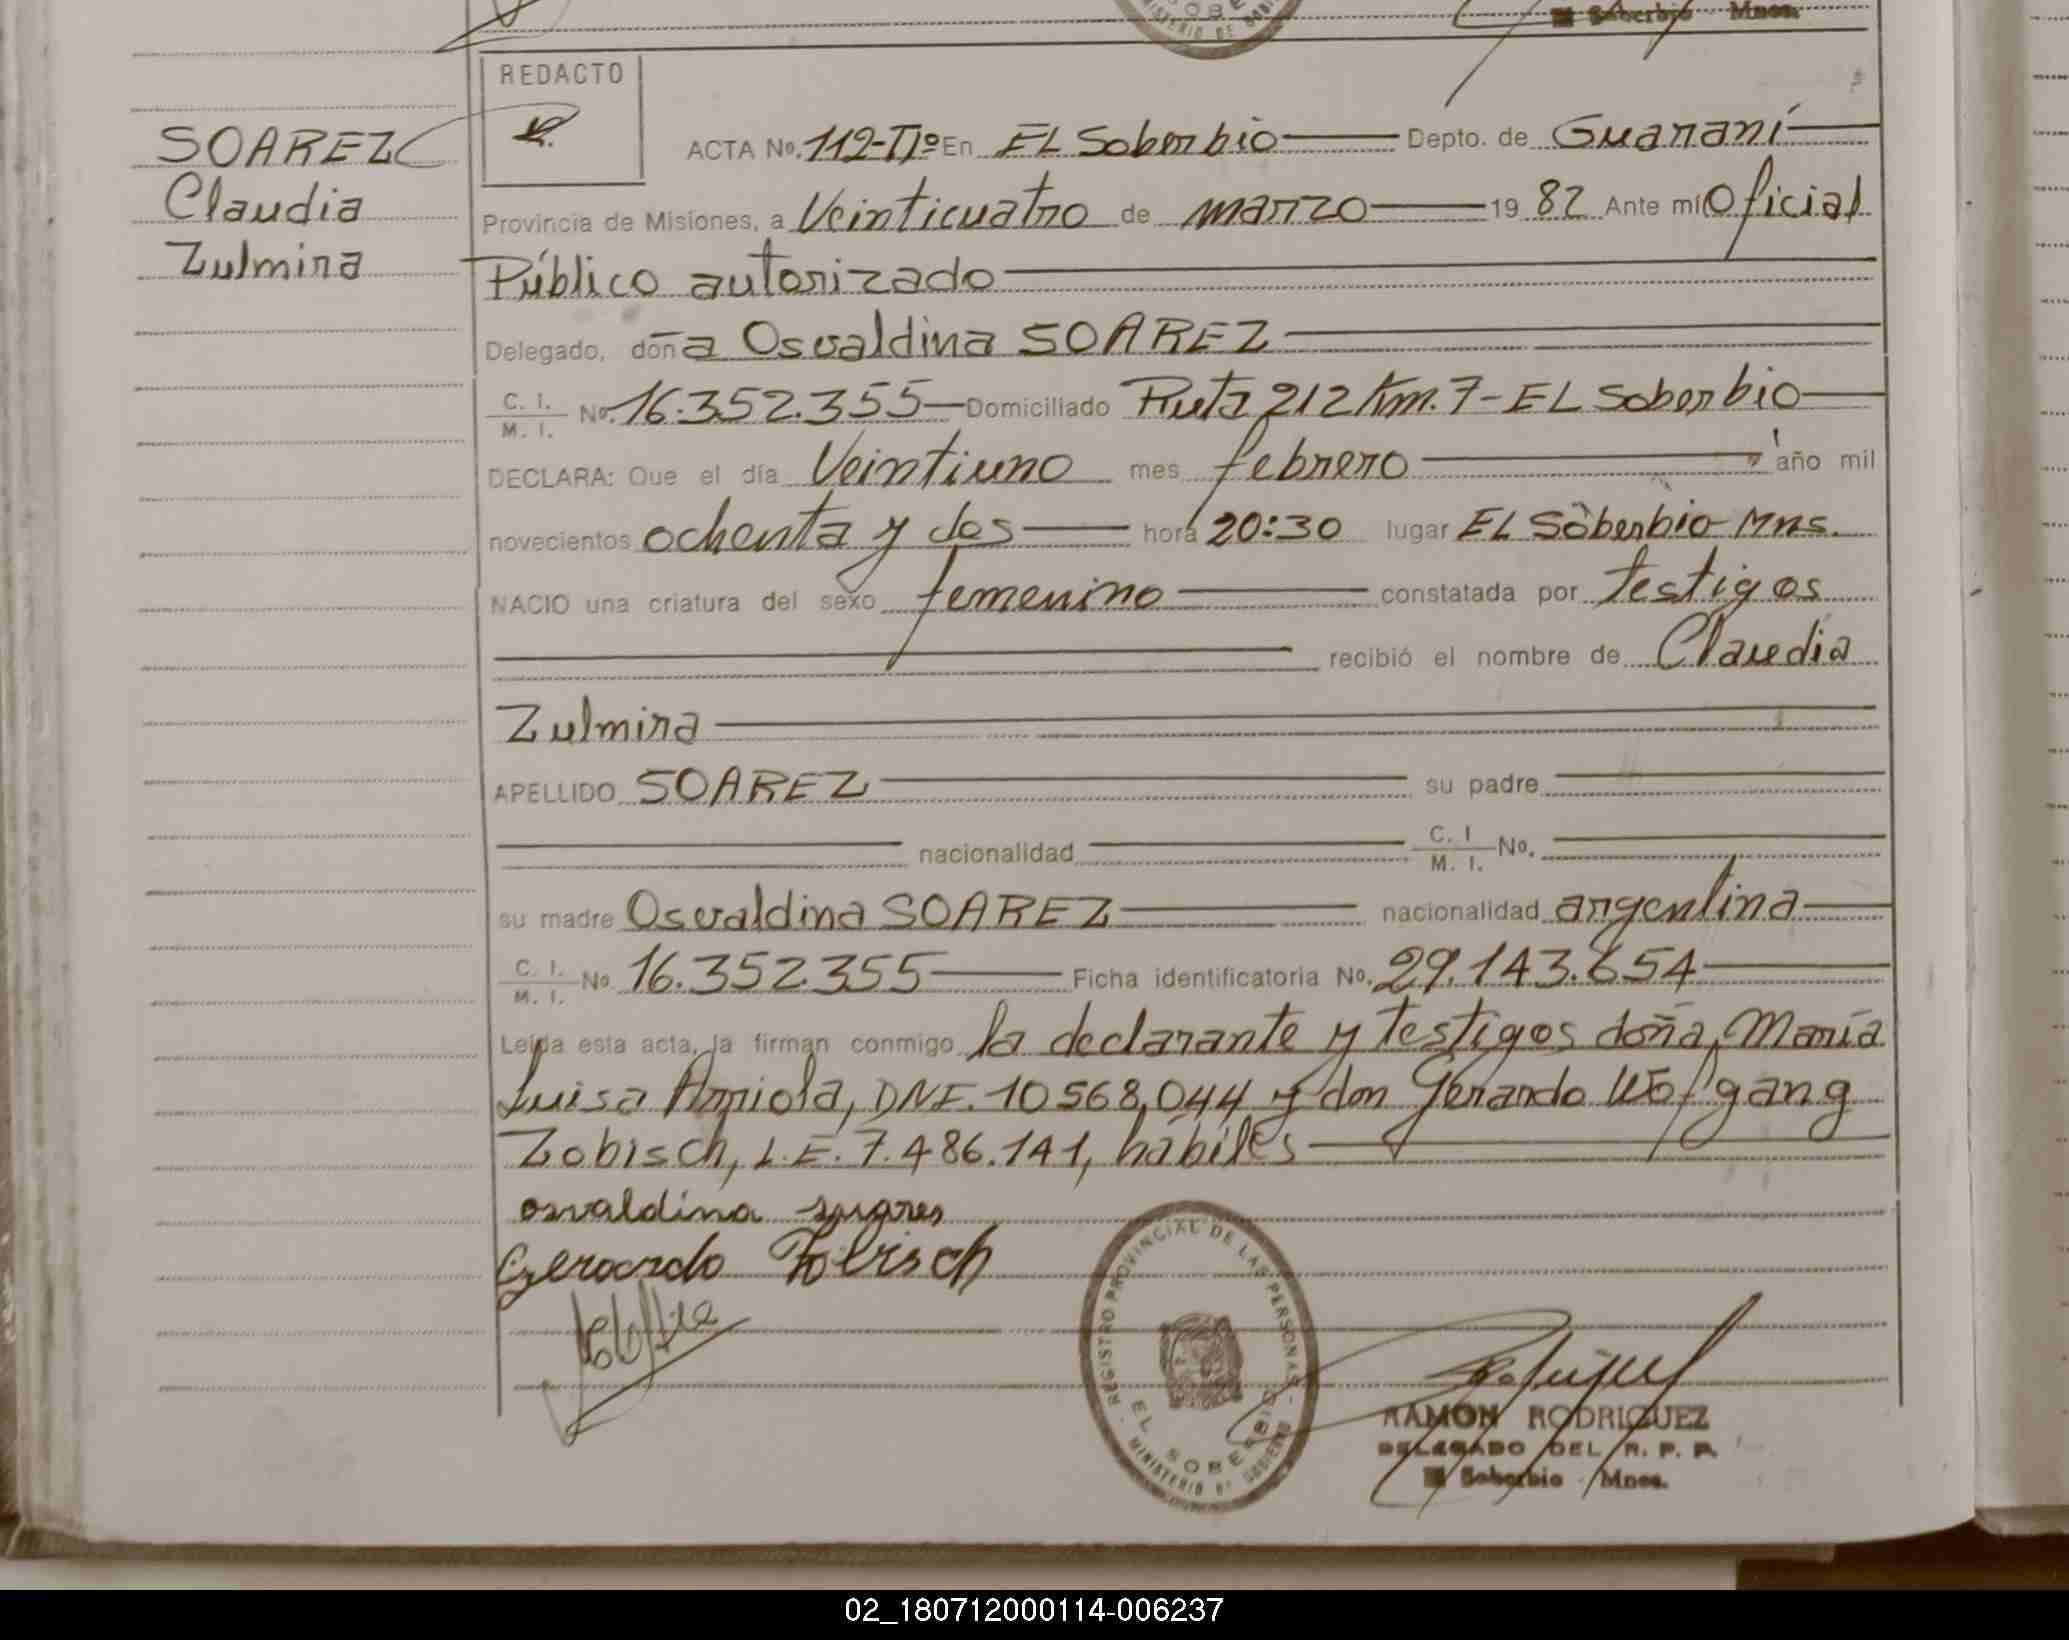 El Soberbio Mnes.
REDACTO
SOAREZ
Claudia
Zulmira
ACTA No. 112-Tº Iº En EL Soberbio Depto. de Guaraní
Provincia de Misiones, a Veinticuatro de marzo 19 82 Ante mí Oficial
Público autorizado
Delegado, doña Osvaldina SOAREZ
C. I. / M. I. No. 16.352.355 Domiciliado Ruta 212 Km. 7 - EL Soberbio
DECLARA: Que el día Veintiuno mes febrero año mil
novecientos ochenta y dos hora 20:30 lugar EL Soberbio Mns.
NACIO una criatura del sexo femenino constatada por testigos
recibió el nombre de Claudia
Zulmira
APELLIDO SOAREZ su padre
nacionalidad C. I / M. I. No.
su madre Osvaldina SOAREZ nacionalidad argentina
C. I. / M. I. No 16.352.355 Ficha identificatoria No. 29.143.654
Leída esta acta, la firman conmigo la declarante y testigos doña, María
Luisa Arriola, DNI. 10568,044 y don Gerardo Wolfgang
Zobisch, L.E. 7.486.141, hábiles
osvaldina suares
Gerardo Zobisch
REGISTRO PROVINCIAL DE LAS PERSONAS
EL SOBERBIO
MINISTERIO DE GOBIERNO
RAMON RODRIGUEZ
DELEGADO DEL R. P. P.
El Soberbio - Mnes.
02_180712000114-006237